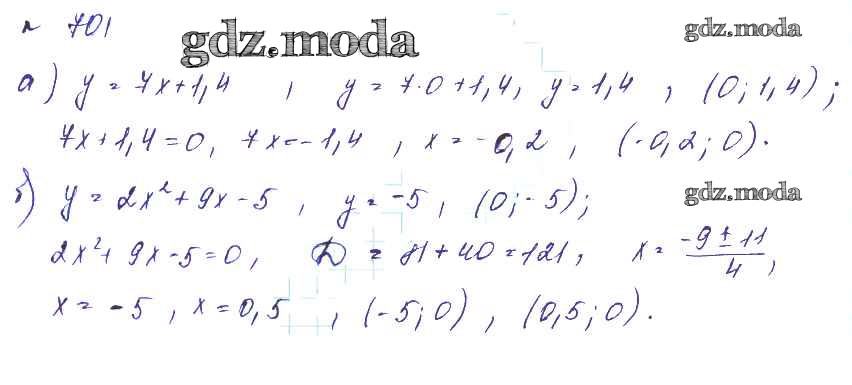 № 701
gdz.moda gdz.moda
а) y = 7x + 1,4 , y = 7·0 + 1,4, y = 1,4 , (0; 1,4);
7x + 1,4 = 0, 7x = -1,4 , x = -0,2 , (-0,2; 0).
б) y = 2x² + 9x - 5 , y = -5, (0; -5);
gdz.moda
2x² + 9x - 5 = 0, D = 81 + 40 = 121, x = (-9 ± 11)/4,
x = -5 , x = 0,5 , (-5; 0) , (0,5; 0).